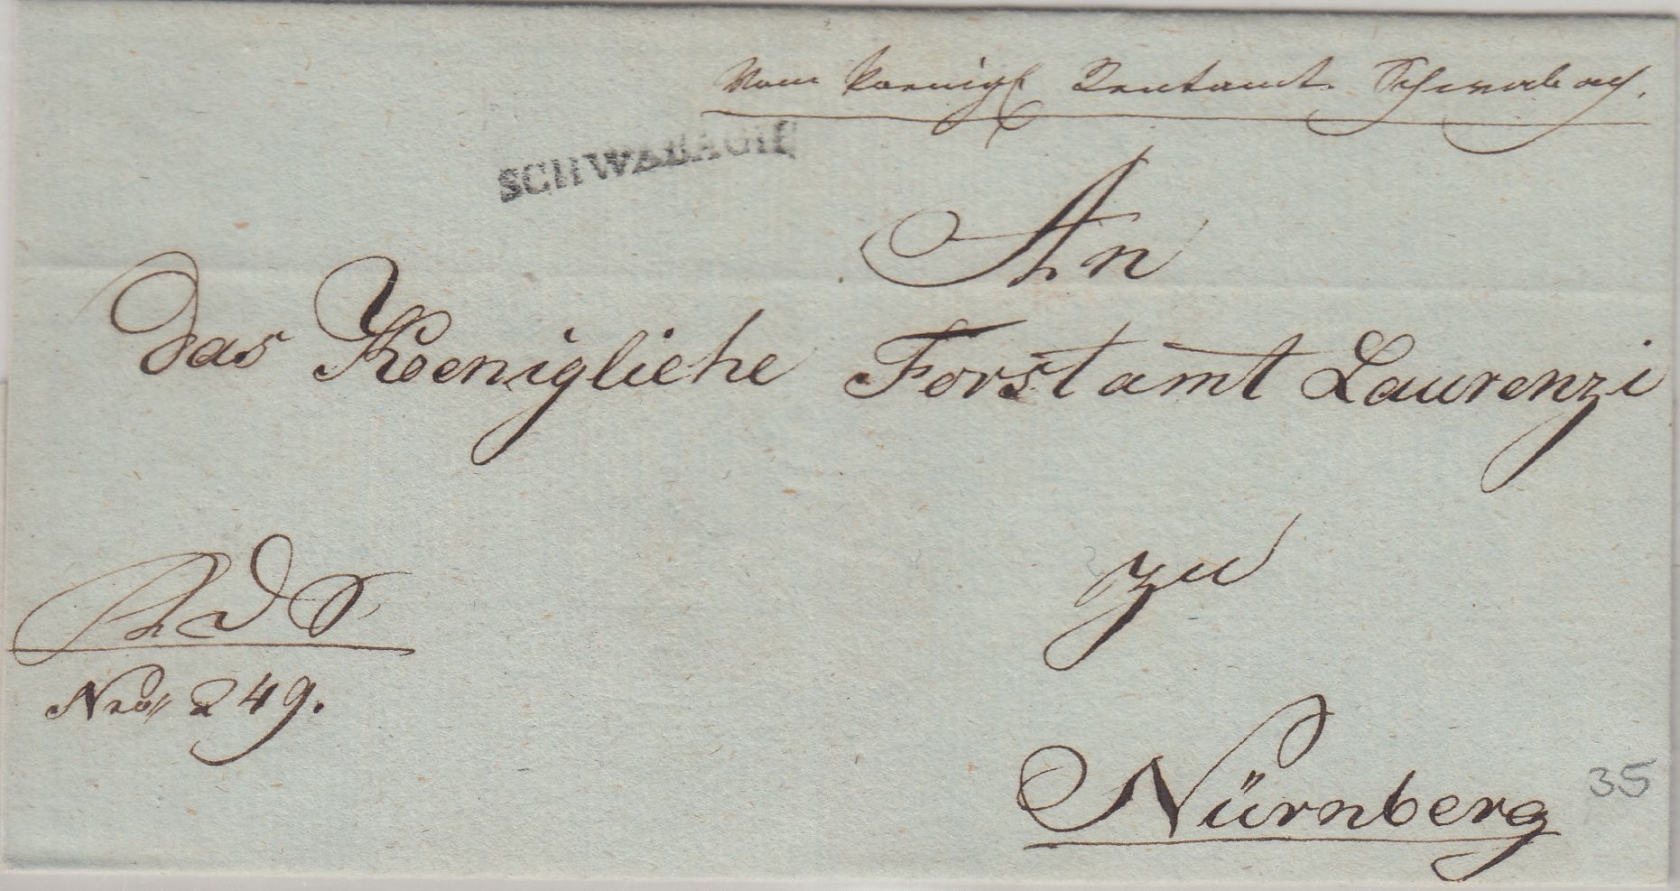 Vom koenigl Rentamt Schwabach.
SCHWABACH
An
das Koenigliche Forstamt Laurenzi
zu
R d S
Nro 249.
Nürnberg
35